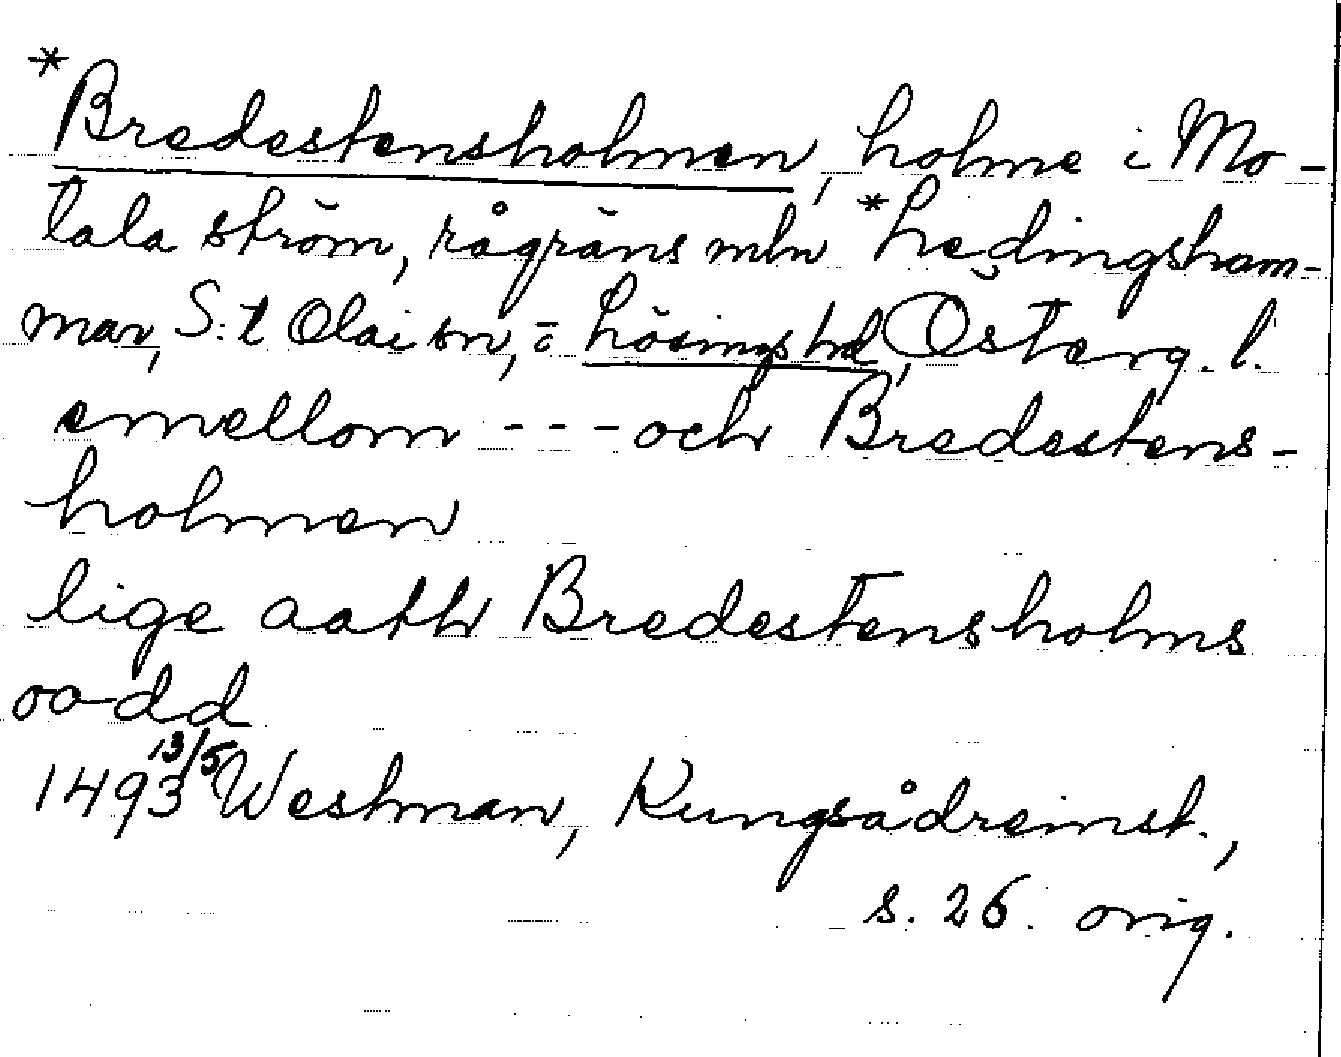 *Bredestensholmen, holme i Mo-
tala ström, rågräns mln *Lædingsham-
mar, S:t Olai sn, i Lösings hd, Österg. l.
emellom --- och Bredestens-
holmen
lige aath Bredestensholms
oodd
1493 13/5 Westman, Kungsådreinst.,
s. 26. orig.